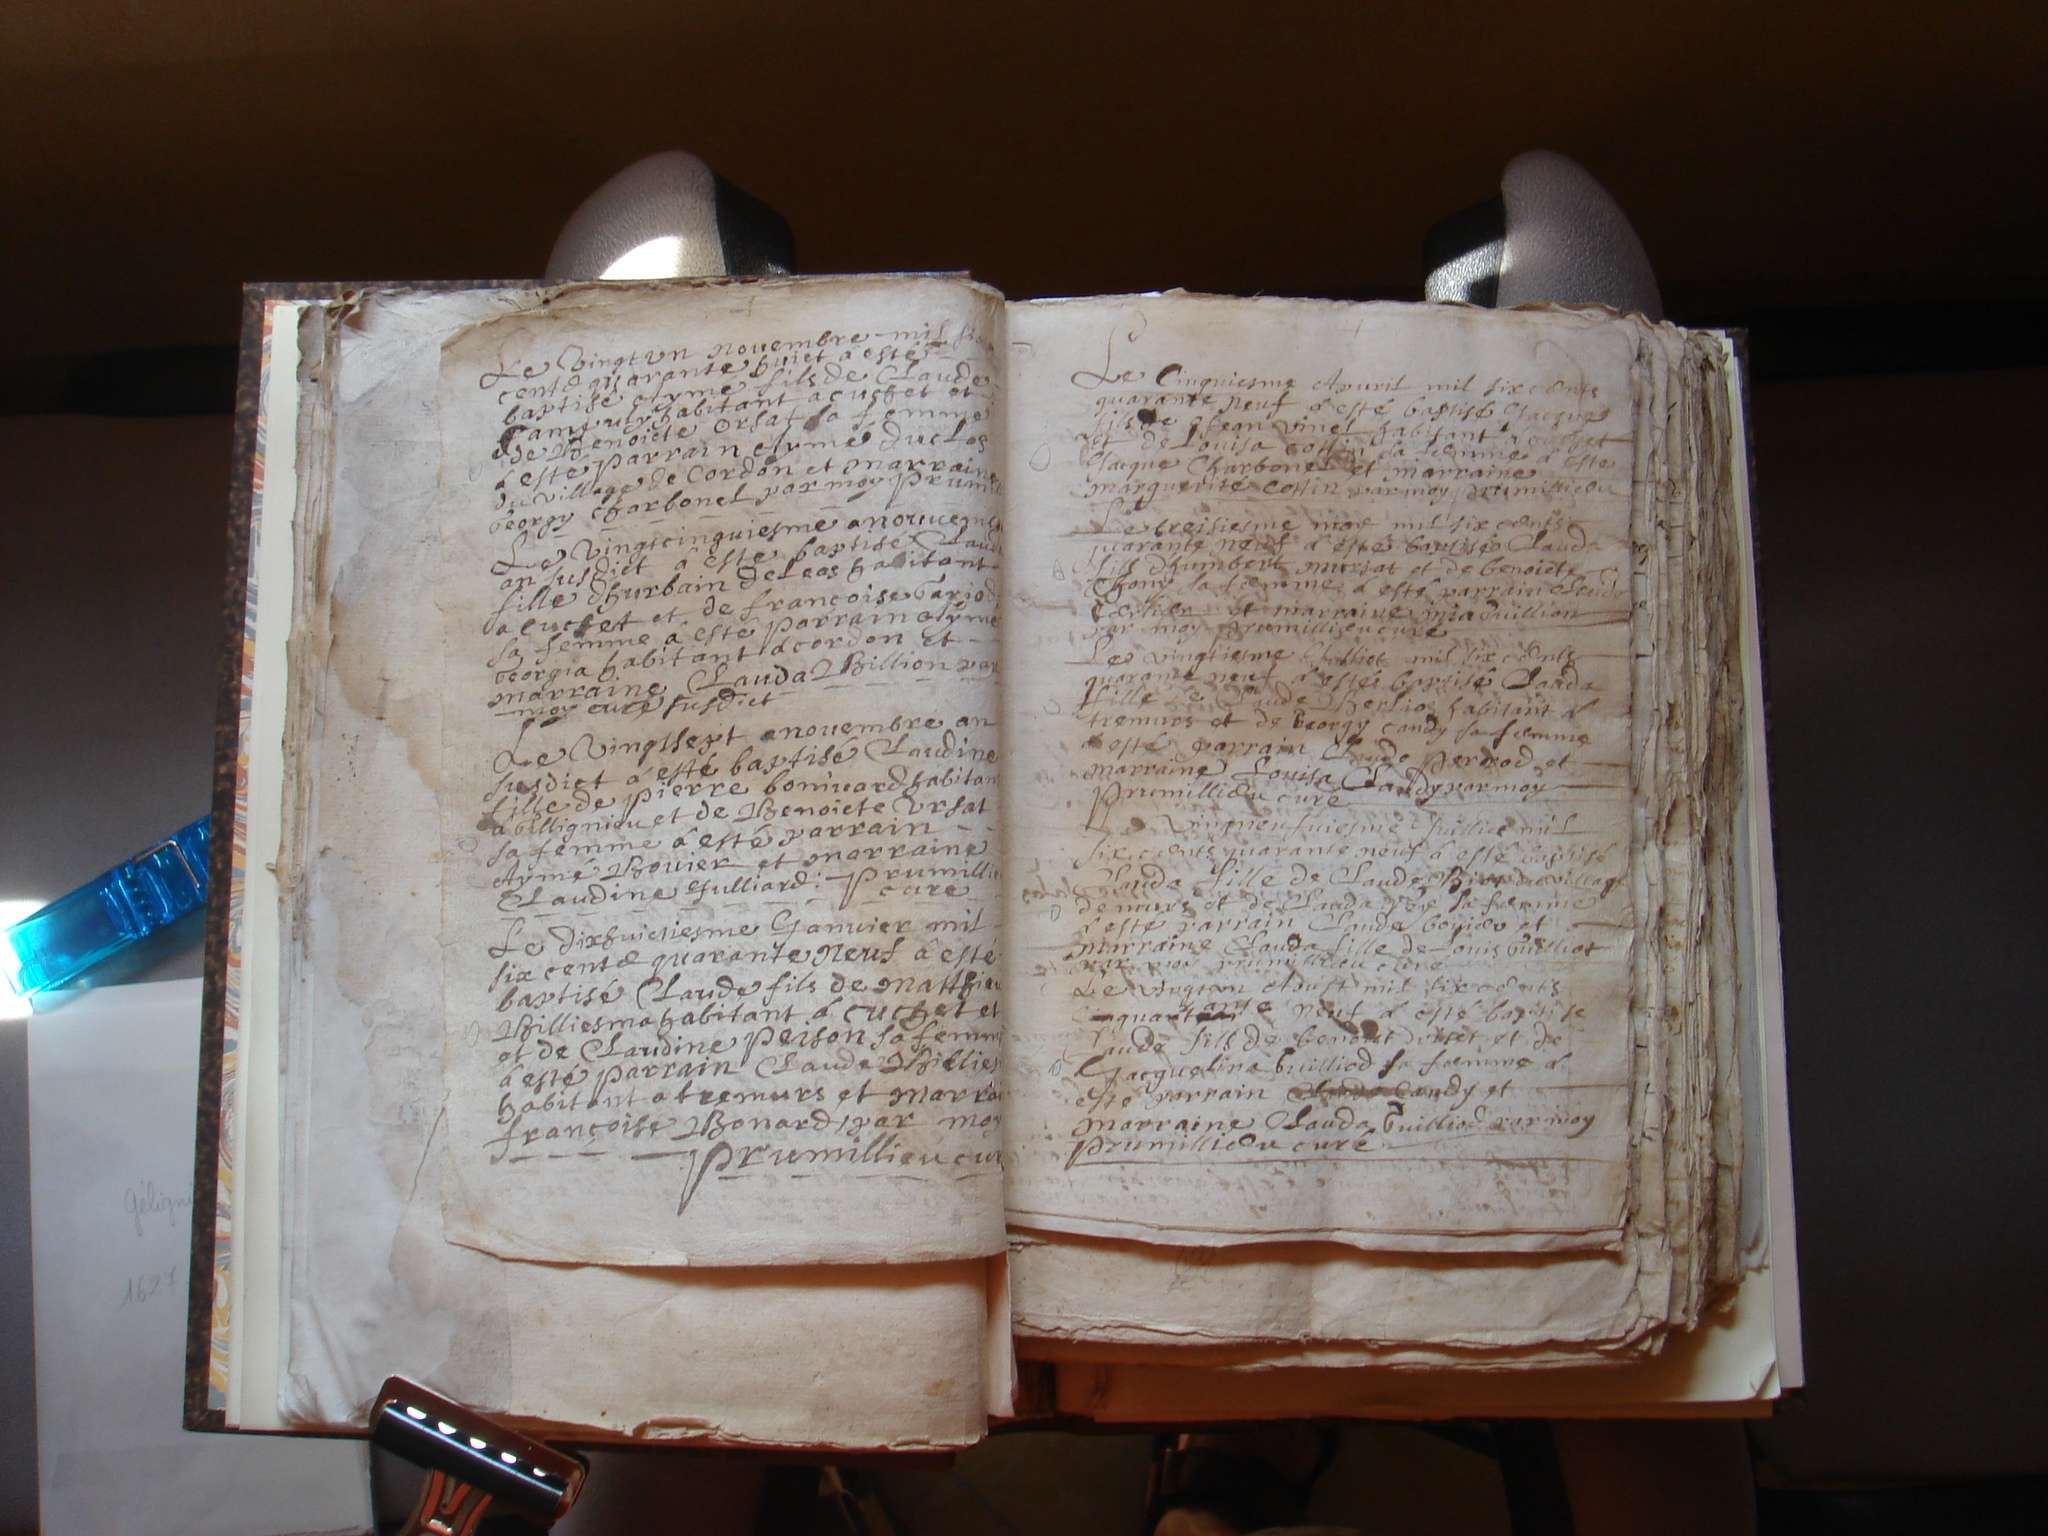 Le vingt un novembre mil six
cents quarante huict à esté
baptisé Aymé fils de Claude
habitant a cuchet et
de Benoiete Orsat sa femme
à esté parrain Aymé Duclos
du village de Cordon et marraine
Georgy Charbonel par moy Prumil
Le vingtcinquiesme
an susdict à esté baptisé Claud
fille dhurbain de Leas habitant
a cuchet et de françoise
sa femme à esté parrain Aymé
Georgia habitant a cordon Et
marraine Clauda Billion par
moy curé susdict
Le vingt sept novembre an
susdict à esté baptisé Claudine
fille de pierre bonivard habitan
a et de Benoiete Ursat
sa femme à esté parrain
Aymé Bouier et marraine
Claudine Julliard: Prumillie
cure
Le dixhuictiesme Janvier mil
six cents quarante neuf à esté
baptisé Claude fils de Matthieu
habitant à cuchet et
et de Claudine peison sa femm
à esté parrain Claude Billies
habitant a tremurs et marrai
françoise Bonard, par moy
Prumillieu cur
Le Cinquiesme Apuril mil six cents
quarante neuf à esté baptisé Jacques
fils de Jean vinel habitant à cuchet
et de Louisa Cottin sa femme à esté
Jacque Charbonel et marraine
marguerite Cottin par moy prumillieu
Le treisiesme mil six cents
quarante neuf à esté baptisé Claude
fils dhumbert et de benoiete
sa femme à esté parrain Claude
et marraine
par moy prumillieu curé
Le vingtiesme Juilliet mil six cents
quarante neuf à esté baptisé Clauda
fille de Claude Berlio habitant à
tremurs et de Georgy Candy sa femme
à esté parrain Claude et
marraine Louisa Candy par moy
Prumillieu curé
mil
six cents quarante neuf à esté baptisé
Clauda fille de Claude du village
de murs et de Clauda sa femme
à esté parrain Claude bouier et
marraine Clauda fille de Louis Guilliot
par moy prumillieu cure
Le vingt un Aoust mil six cents
quarante neuf à esté baptisé
Claude fils de benoiet et de
Jacquelina Guilliod sa femme à
esté parrain Candy et
marraine Clauda Guilliod par moy
Prumillieu curé
1627